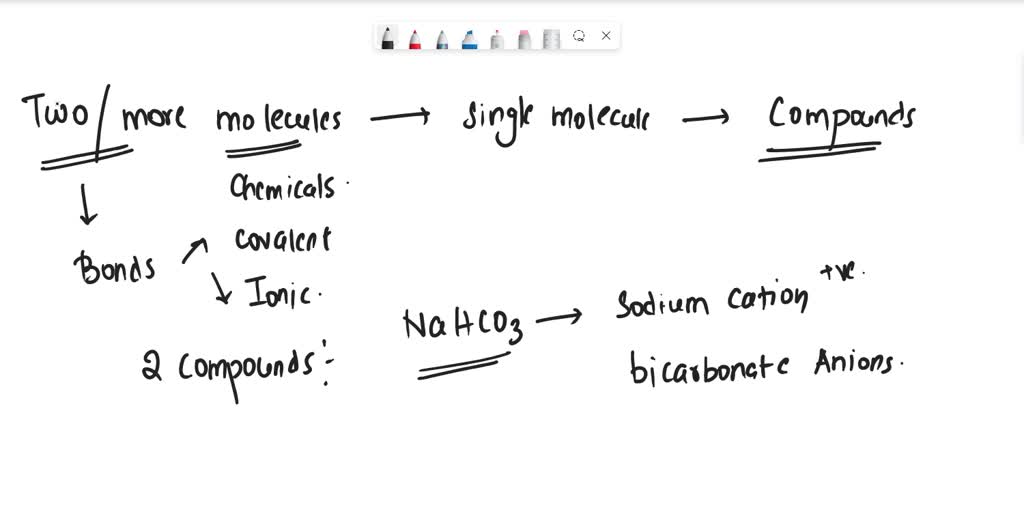 Two/more molecules → Single molecule → Compounds
↓
Chemicals.
Bonds ↗ Covalent
↘ Ionic.
NaHCO3 → Sodium Cation +ve.
2 Compounds:- bicarbonate Anions.